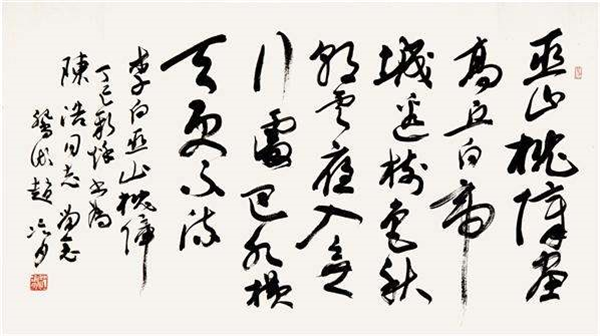 巫山枕障画
高丘白帝
城边树色秋
朝云夜入无
行處巴水横
天更不流
李白巫山枕障
丁巳新秋书为
陳浩同志留念
趙冷月